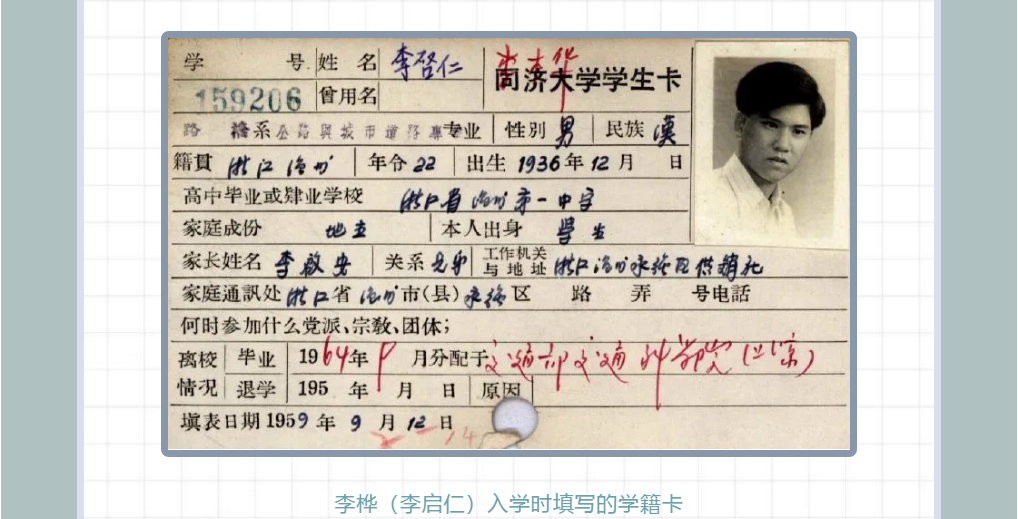 学 号 姓 名 李啓仁
同济大学学生卡
159206 曾用名
路 桥系 公路與城市道路專专业 性別 男 民族 漢
籍貫 浙江 年令 22 出生 1936年12月 日
高中毕业或肄业学校 浙江省 第一中学
家庭成份 地主 本人出身 学生
家长姓名 李啟安 关系 兄弟 工作机关与地址 浙江 供銷社
家庭通訊处 浙江省 市(县) 区 路 弄 号电話
何时参加什么党派、宗教、团体;
离校情况 毕业 1964年9月分配于交通部交通科学院(北京)
退学 195 年 月 日 原因
填表日期 1959年9月12日
李桦（李启仁）入学时填写的学籍卡